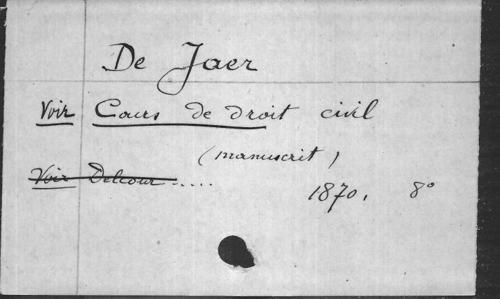 De Jaer
Voir Cours de droit civil
(manuscrit)
Voir Delcour.....
1870, 8°